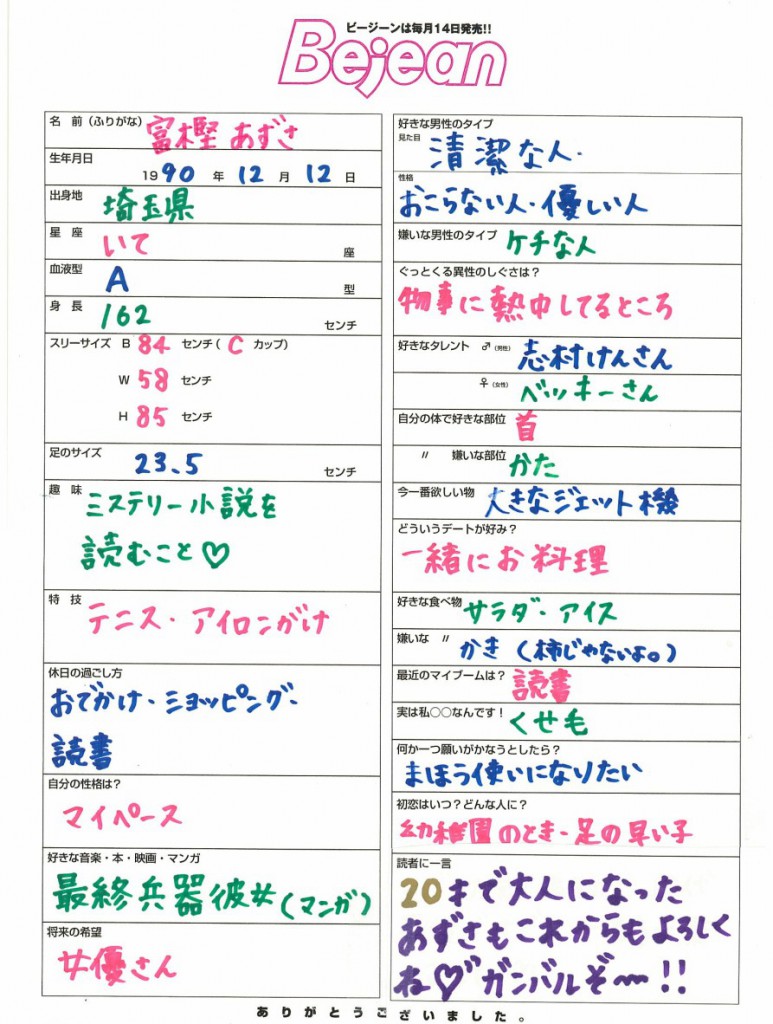 ビージーンは毎月14日発売!!
Bejean
名 前(ふりがな) 富樫 あずさ
生年月日
1990 年 12 月 12 日
出身地 埼玉県
星 座 いて 座
血液型 A 型
身 長 162 センチ
スリーサイズ B 84 センチ( C カップ)
W 58 センチ
H 85 センチ
足のサイズ 23.5 センチ
趣 味 ミステリー小説を
読むこと♡
特 技 テニス・アイロンがけ
休日の過ごし方
おでかけ・ショッピング・
読書
自分の性格は?
マイペース
好きな音楽・本・映画・マンガ
最終兵器彼女(マンガ)
将来の希望
女優さん
好きな男性のタイプ
見た目 清潔な人・
性格
おこらない人・優しい人
嫌いな男性のタイプ ケチな人
ぐっとくる異性のしぐさは?
物事に熱中してるところ
好きなタレント ♂(男性) 志村けんさん
♀(女性) ベッキーさん
自分の体で好きな部位 首
〃 嫌いな部位 かた
今一番欲しい物 大きなジェット機
どういうデートが好み?
一緒にお料理
好きな食べ物 サラダ・アイス
嫌いな 〃 かき(柿じゃないよ。)
最近のマイブームは? 読書
実は私○○なんです! くせ毛
何か一つ願いがかなうとしたら?
まほう使いになりたい
初恋はいつ?どんな人に?
幼稚園のとき・足の早い子
読者に一言
20才で大人になった
あずさもこれからもよろしく
ね♡ガンバルぞ〜!!
ありがとうございました。